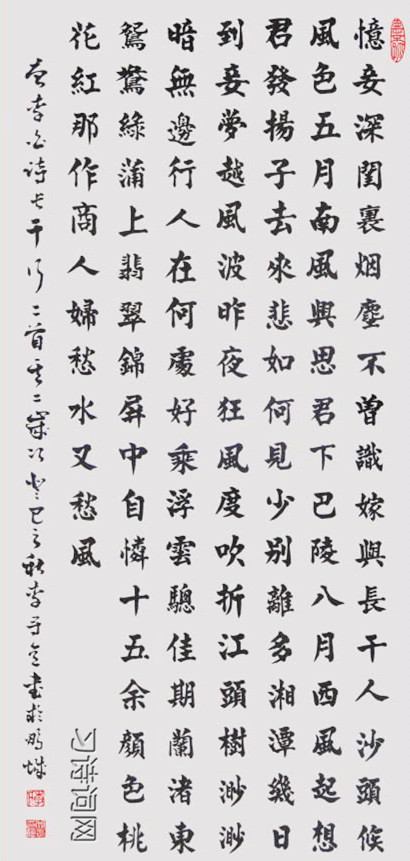 憶妾深閨裏烟塵不曾識嫁與長干人沙頭候
風色五月南風興思君下巴陵八月西風起想
君發揚子去來悲如何見少別離多湘潭幾日
到妾夢越風波昨夜狂風度吹折江頭樹渺渺
暗無邊行人在何處好乘浮雲驄佳期蘭渚東
鴛鴦綠蒲上翡翠錦屏中自憐十五余顏色桃
花紅那作商人婦愁水又愁風
李白诗长干行二首其二歲次癸巳之秋李守書於鹏城